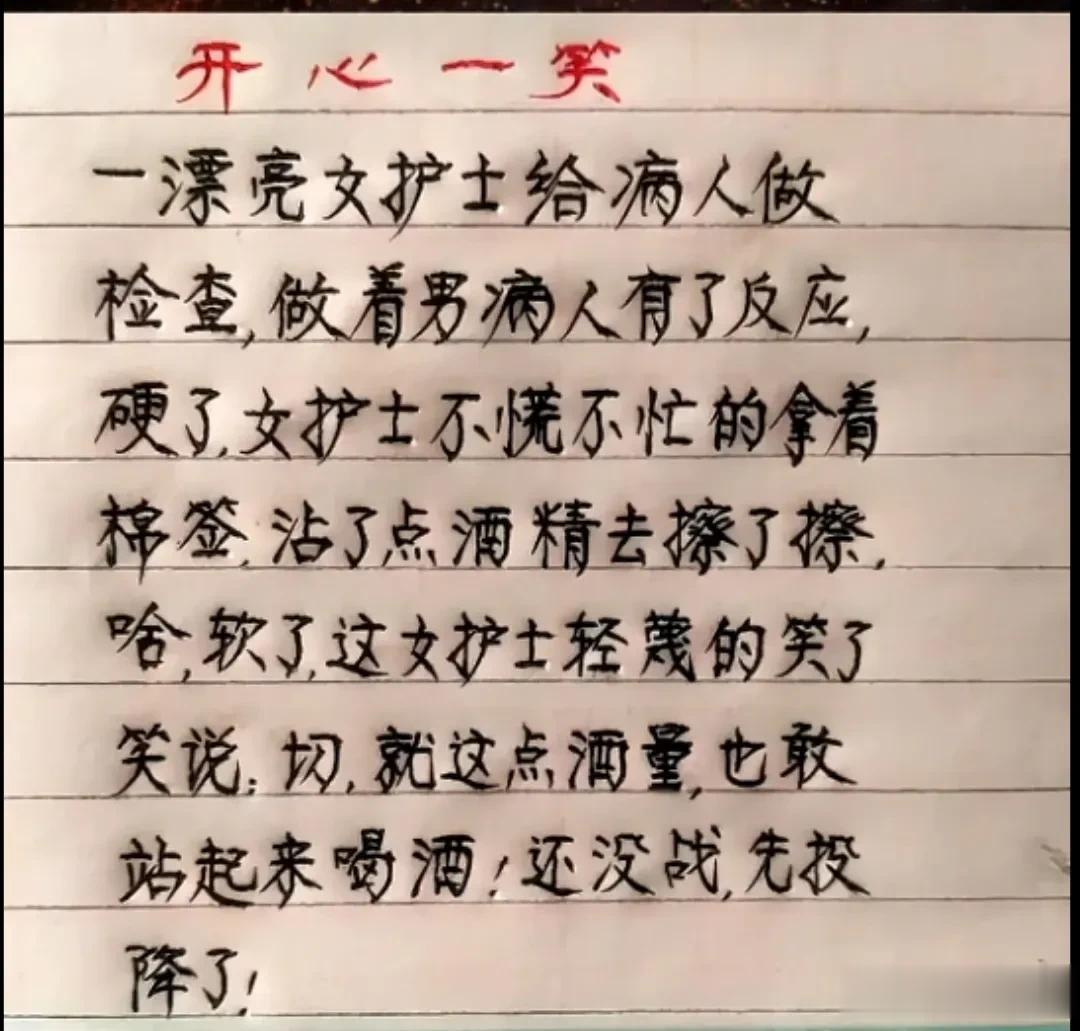 开心一笑
一漂亮女护士给病人做
检查,做着男病人有了反应,
硬了,女护士不慌不忙的拿着
棉签,沾了点酒精去擦了擦,
啥,软了,这女护士轻蔑的笑了
笑说:切,就这点酒量,也敢
站起来喝酒!还没战,先投
降了!